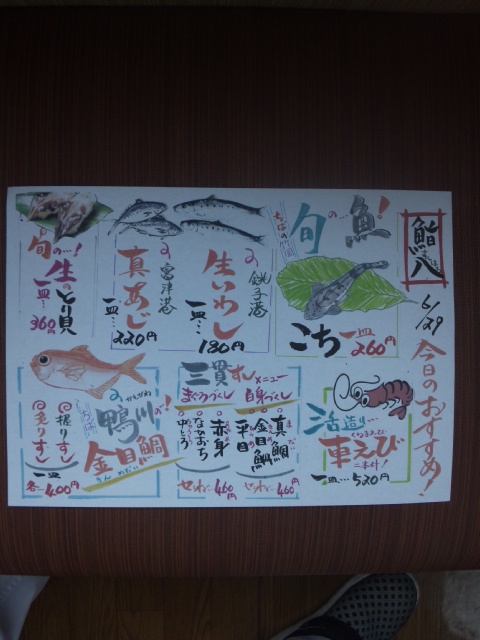 鮨八
6/29
今日のおすすめ!
旬の…魚!
こち一皿260円
の銚子港
生いわし
一皿…180円
の富津港
真あじ
一皿…220円
旬の…!
生のとり貝
一皿…360円
活造り…
車えび
二本付!
一皿…520円
三貫すしメニュー
白身づくし
真鯛
金目鯛
平目
セットで460円
まぐろづくし
赤身
中とろ
セットで460円
かもがわ
鴨川の…!
金目鯛
きんめだい
握りずし
炙りずし
一皿
各…400円